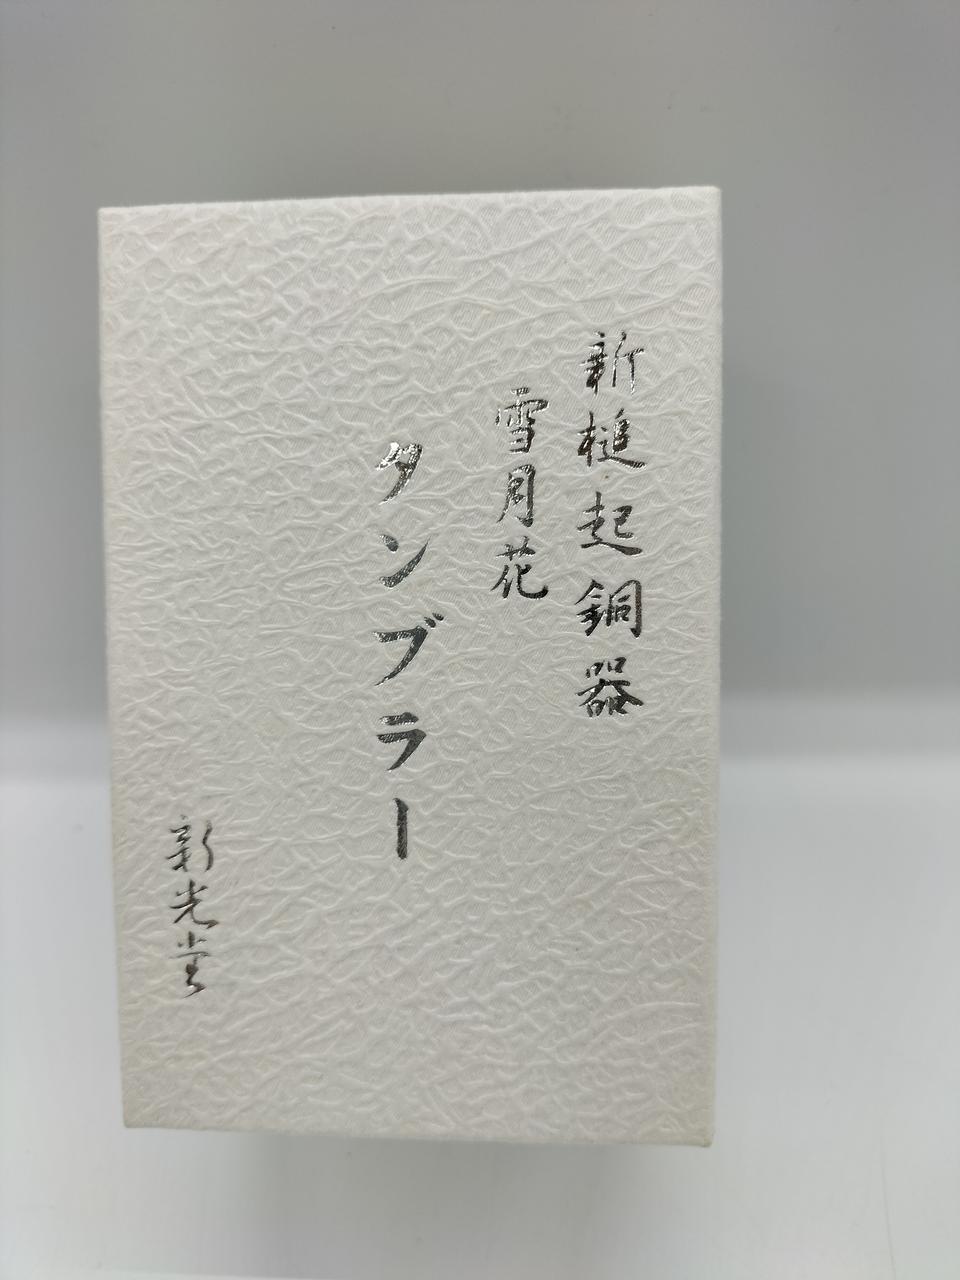 新槌起銅器
雪月花
タンブラー
新光堂